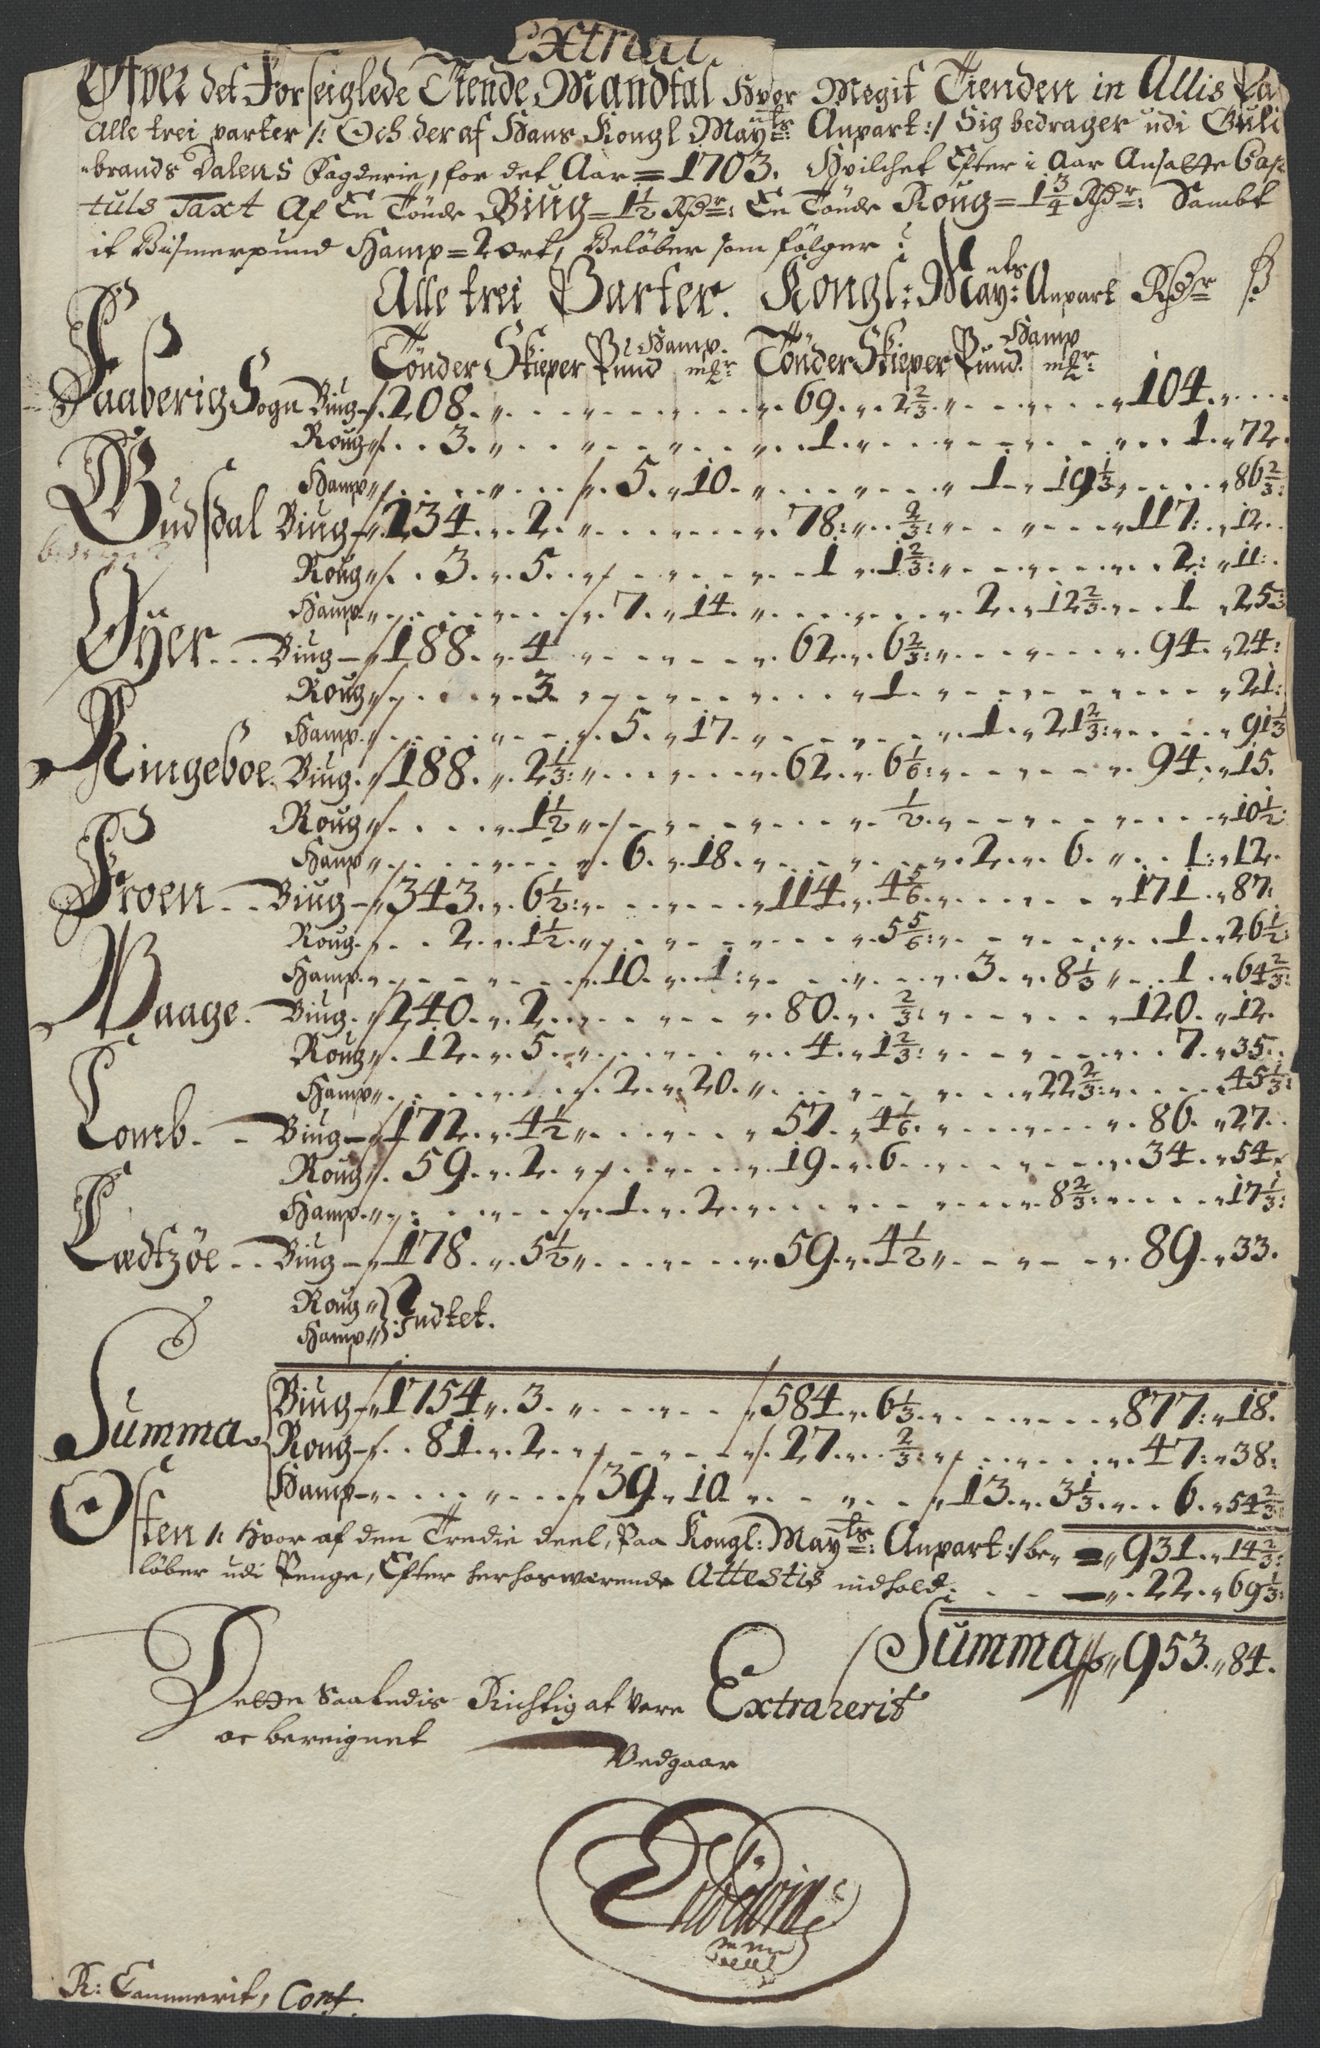 Extract
Ofver det Forseiglede Tiende Mandtal Hvor Megit Tienden in Allis Paa
Alle trei parter /: Och der af Hans Kongl Mayts: Anpart :/ Sig bedrager udi Guld
-brands Dalens Fagderie, for det Aar = 1703. Hvilchet Efter i Aar Ansatte Cap
tuls Taxt Af En Tönde Biug = 1½ Rdr: En Tönde Roug = 1¾ Rdr: Sambt
it Bismerpund Hamp = 2 ort, Beløber som følger
Alle trei Parter. Kongl: Mayts: Anpart Rdr ß
Tönder Skieper Pund Hamp. mkr Tönder Skieper Pund. Hamp mkr
Faaberig Sogn Biug 208. 69. 2⅔ 104.
Roug 3. 1. 1. 72.
Hamp 5. 10. 1 19⅓ 86⅔:
Gudsdal Biug 234. 2. 78: ⅔: 117: 12.
Roug 3. 5. 1 1⅔: 2: 11:
Hamp 7. 14. 2. 12⅔. 1 25⅓
Öyer Biug 188. 4 62. 6⅔: 94. 24:
Roug 3 1. 21:
Hamp 5. 17. 1. 21⅔: 91⅓
Ringeboe. Biug. 188. 2⅓: 62. 6⅙: 94. 15.
Roug 1½ ½. 10½
Hamp 6. 18. 2. 6. 1: 12.
Froen Biug 343. 6½: 114. 4⅚ 171. 87:
Roug. 2. 1½. 5⅚: 1. 26½:
Hamp. 10. 1: 3. 8⅓ 1. 64⅔:
Waage. Biug. 240. 2. 80. ⅔: 120. 12.
Roug 12. 5. 4. 1⅔: 7. 35.
Hamp 2. 20. 22⅔: 45⅓:
Lomb. Biug 172. 4½ 57. 4⅙ 86. 27.
Roug 59. 2. 19. 6 34. 54
Hamp. 1. 2. 8⅔: 17⅓:
Lædtzøe Biug 178. 5½ 59. 4½ 89. 33.
Roug
Hamp Indtet.
Summa. Biug 1754. 3. 584. 6⅓. 877: 18.
Roug 81. 2. 27. ⅔: 47: 38:
Hamp 39. 10 13. 3⅓ 6. 54⅔:
Osten /: Hvor af den Tredie deel, Paa Kongl: Mayts: Anpart :/ be 931. 14⅔:
løber udi Penge, Efter herhosværende Attestis indhold: 22. 69⅓:
Summa 953. 84.
Dette Saaledis Richtig at være Extraherit
oc beregnet
Vedgaar
R: Cammerit, Conf.